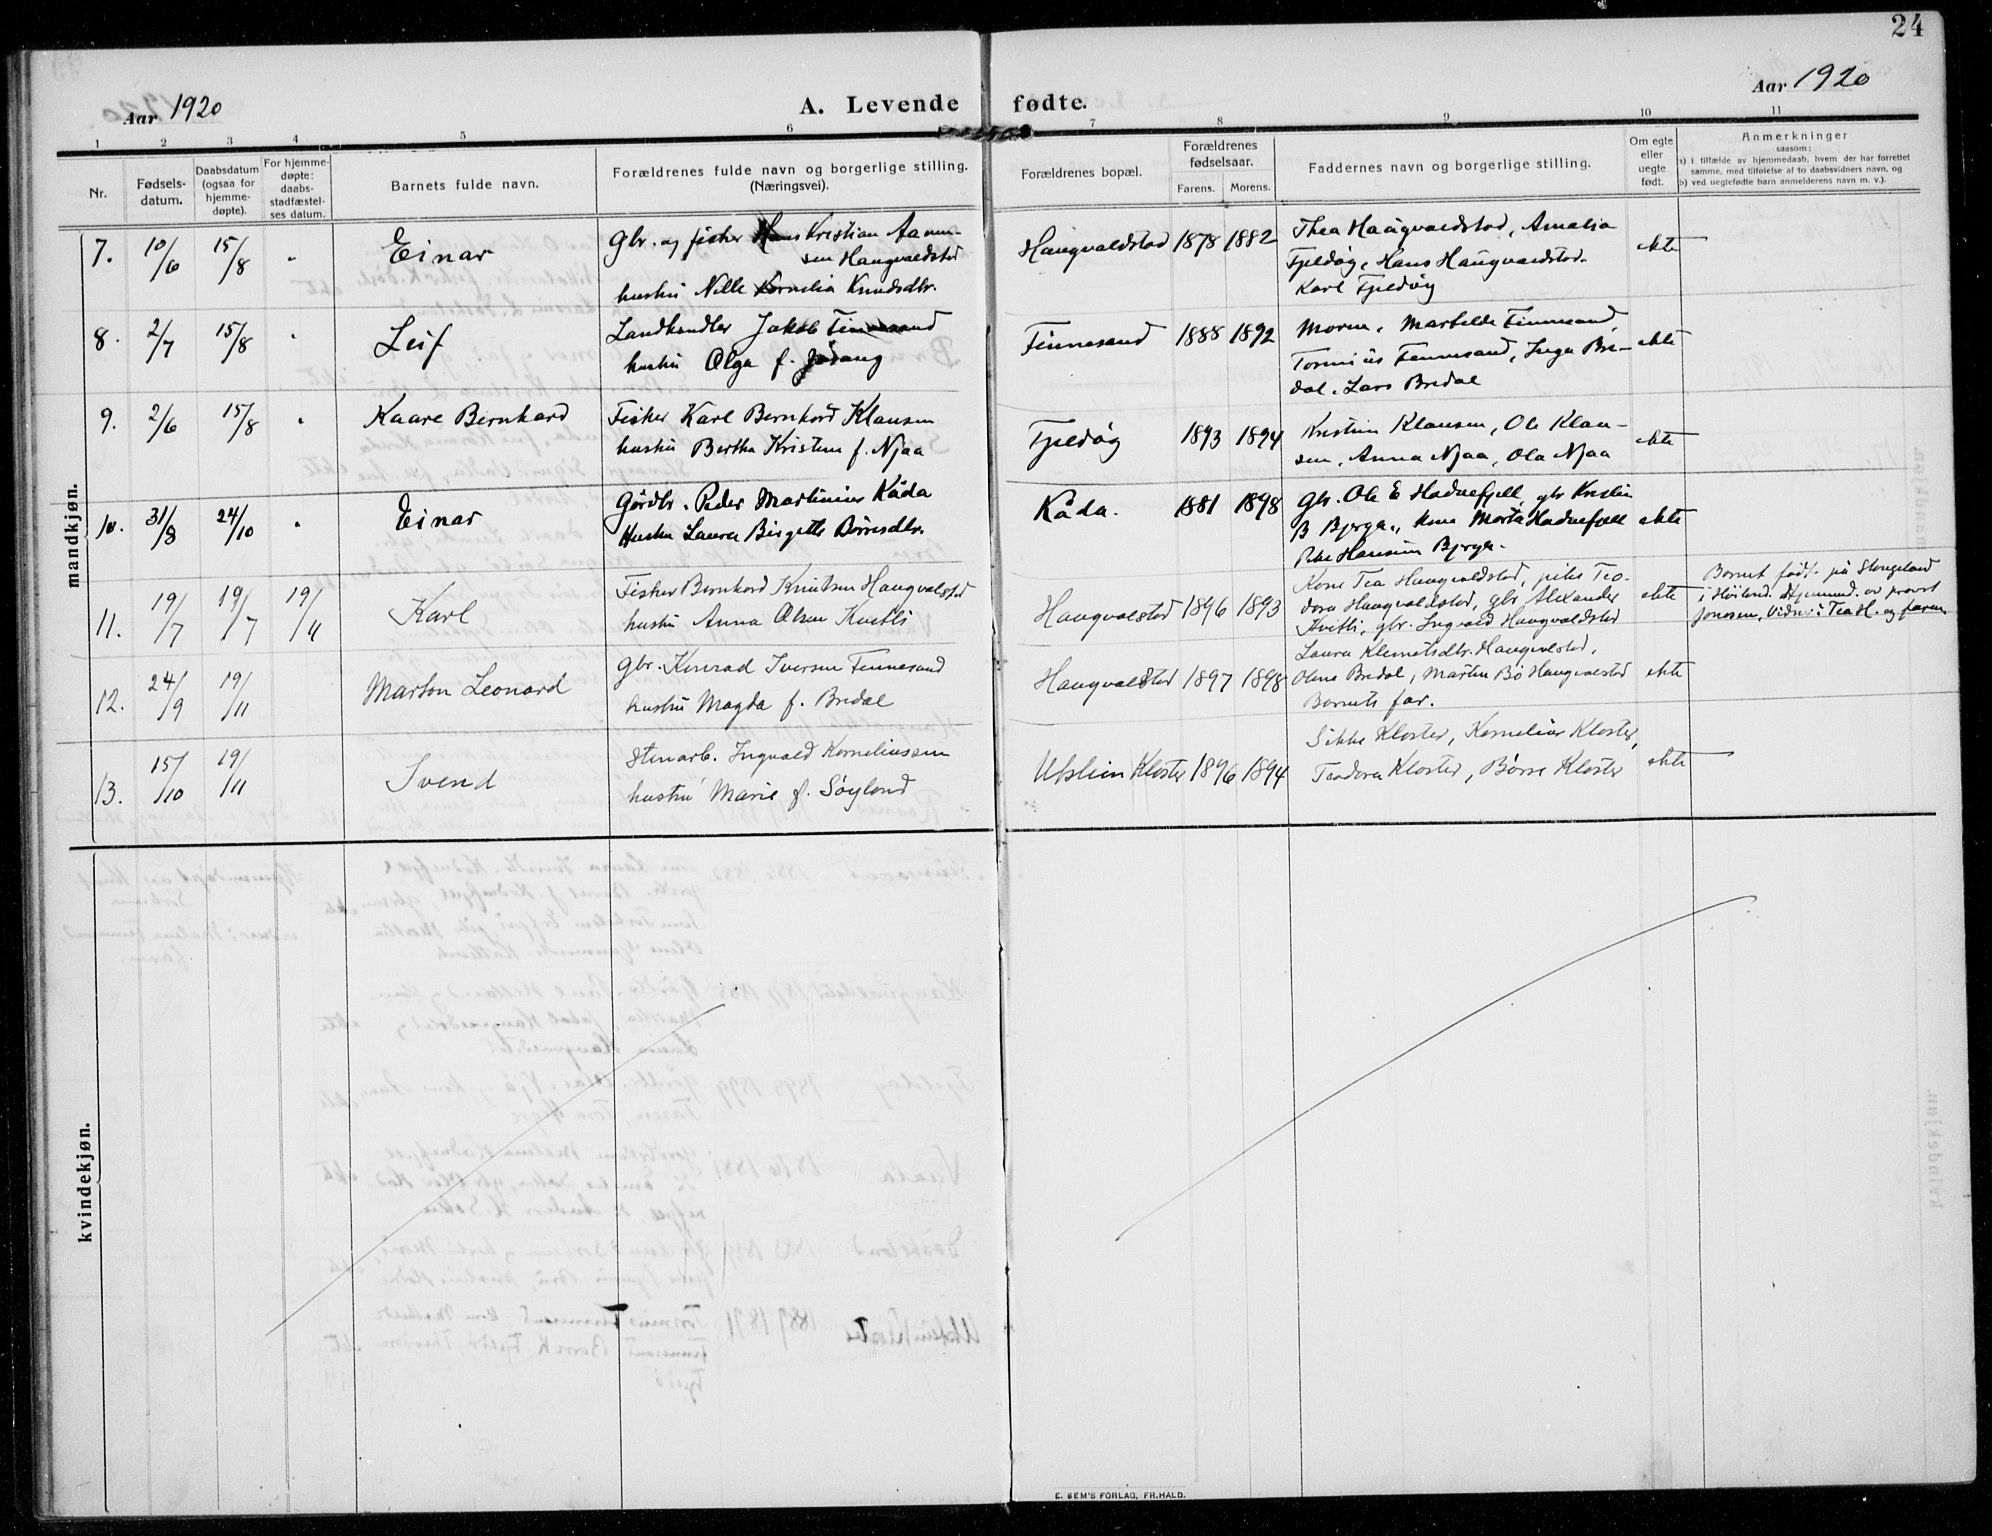 24
Aar 1920
A. Levende fødte.
Aar 1920
1 2 3 4 5 6 7 8 9 10 11
Nr.
Fødsels-
datum.
Daabsdatum
(ogsaa for
hjemme-
døpte).
For hjemme-
døpte:
daabs-
stadfæstel-
ses datum.
Barnets fulde navn.
Forældrenes fulde navn og borgerlige stilling.
(Næringsvei).
Forældrenes bopæl.
Forældrenes
fødselsaar.
Farens. Morens.
Faddernes navn og borgerlige stilling.
Om egte
eller
uegte
født.
Anmerkninger
saasom:
a) i tilfælde av hjemmedaab, hvem der har forrettet
samme, med tilføielse af to daabsvidners navn, og
b) ved uegtefødte barn anmelderens navn m. v.).
mandkjøn.
7. 10/6 15/8 " Einar
Gbr. og fisker Hans Kristian Aamun-
sen Haugvaldstad
hustru Nille Kornelia Knudsdtr.
Haugvaldstad 1878 1882
Thea Haaugvaldstad, Amalia
Fjeldøy, Hans Haugvaldstad.
Karl Fjeldøy
ekte
8. 2/7 15/8 " Leif
Landhandler Jakob Finnesand
hustru Olga f.
Finnesand 1888 1892
Moren, Mathilde Finnesand,
Tormius Finnesand, Inga Bre-
dal, Lars Bredal
ekte
9. 2/6 15/8 " Kaare Bernhard
Fisker Karl Bernhard Klausen
hustru Bertha Kristine f. Njaa
Fjeldøy 1893 1894
Kristine Klausen, Ole Klau-
sen, Anna Njaa, Ola Njaa
ekte
10. 31/8 24/10 " Einar
Gårdbr. Peder Martinius Kåda
Hustru Laura Birgitte Børresdtr.
Kåda. 1881 1898
Gbr. Ole E Hodnefjell, gbr Kristin
B Bjerga, kone Marta Hodnefjell
Pike Hansine Bjerga.
ekte
11. 19/7 19/7 19/11 Karl
Fisker Bernhard Knutsen Haugvalstad
hustru Anna Olsen Kvitli
Haugvalstad 1896 1893
Kone Tea Haugvaldstad, pike Teo-
dora Haugvaldstad, gbr Alexander
Kvitli, gbr. Ingvald Haugvaldstad
ekte
Barnet født på Stangeland
i Høiland. Hjemmd. av provst
Jonassen, Vidner: Tea H. og faren
12. 24/9 19/11 Marton Leonard
gbr. Konrad Iversen Finnesand
hustru Magda f. Bredal
Haugvalstad 1897 1898
Laura Klemetsdtr. Haugvalstad,
Olena Bredal, Martin Bø Haugvalstad
Barnets far.
ekte
13. 15/10 19/11 Svend
Stenarb. Ingvald Korneliussen
hustru Marie f. Søyland
Utstein Kloster 1896 1894
Sikke Kloster, Kornelius Kloster,
Teodora Kloster, Børre Kloster
ekte
kvindekjøn.
E. SEM'S FORLAG, FR.HALD.